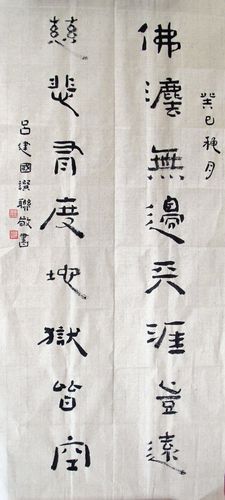 癸巳穐月
佛灋無邊天涯豈遠
慈悲有度地獄皆空
呂建國譔聯敬書